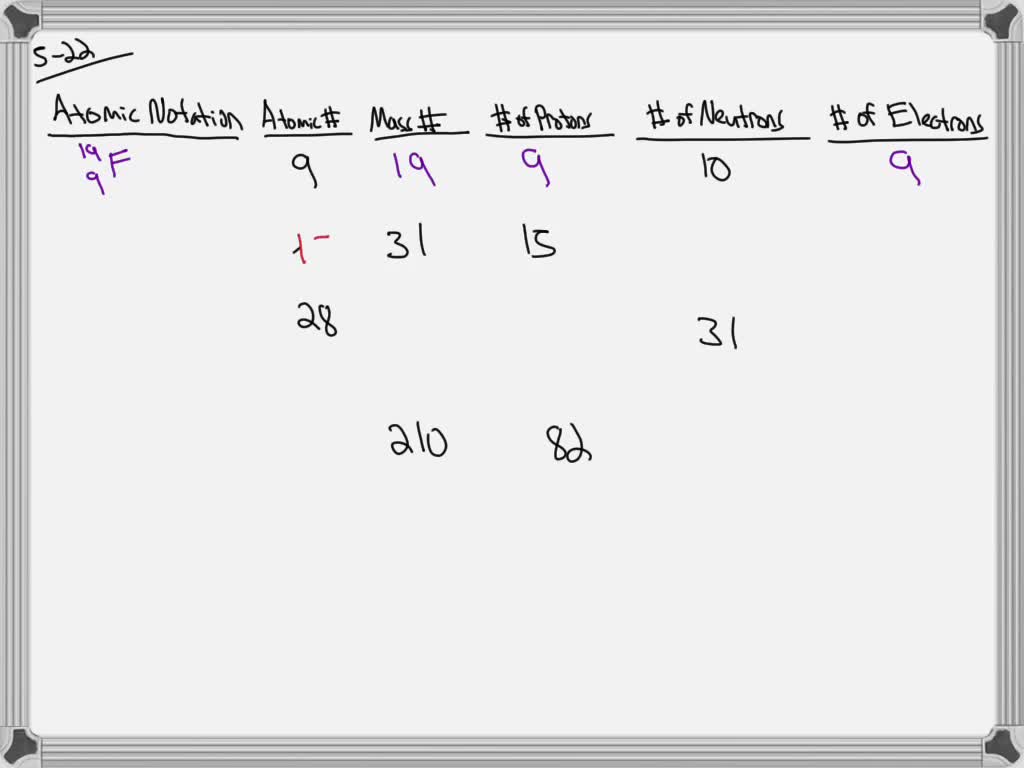 5-22
Atomic Notation Atomic # Mass # # of Protons # of Neutrons # of Electrons
19 9 F 9 19 9 10 9
31 15
28 31
210 82